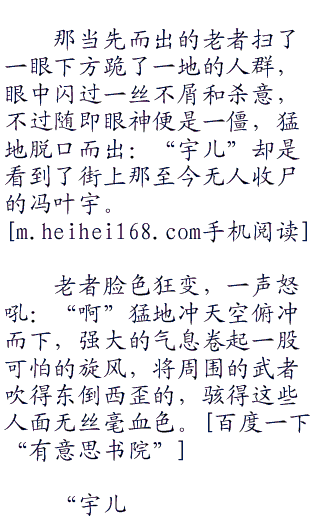 那当先而出的老者扫了
一眼下方跪了一地的人群，
眼中闪过一丝不屑和杀意，
不过随即眼神便是一僵，猛
地脱口而出：“宇儿”却是
看到了街上那至今无人收尸
的冯叶宇。
[m.heihei168.com手机阅读]
老者脸色狂变，一声怒
吼：“啊”猛地冲天空俯冲
而下，强大的气息卷起一股
可怕的旋风，将周围的武者
吹得东倒西歪的，骇得这些
人面无丝毫血色。[百度一下
“有意思书院”]
“宇儿